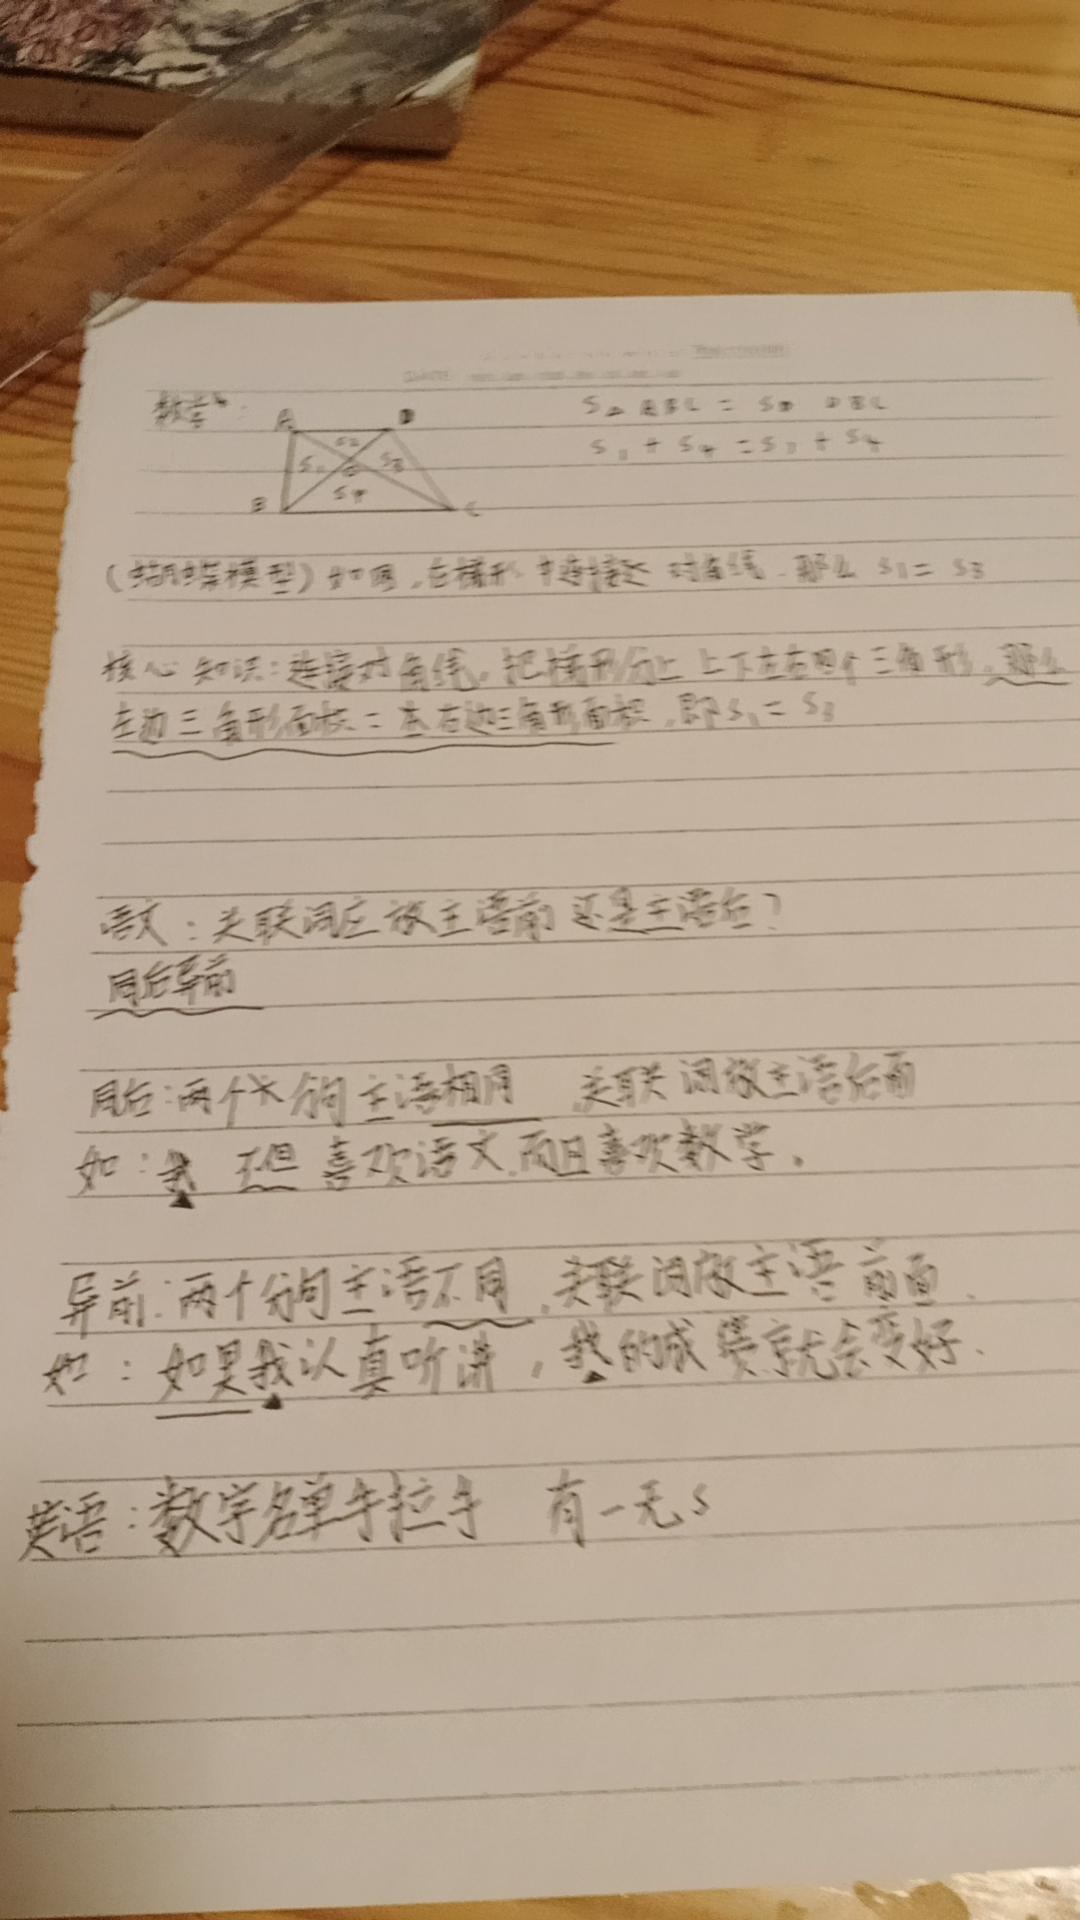 数学:
A D
S△ABC = S△DBC
S2
S1 S3
S1 + S4 = S3 + S4
S4
B C
(蝴蝶模型)如图,在梯形中连接 对角线,那么 S1 = S3
核心知识:连接对角线,把梯形分上下左右四个三角形,那么
左边三角形面积=右边三角形面积,即S1 = S3
语文:关联词应放主语前还是主语后?
同后异前
同后:两个分句主语相同,关联词放主语后面
如:我 不但 喜欢语文,而且喜欢数学。
异前:两个分句主语不同,关联词放主语前面.
如:如果我认真听讲,我的成绩就会变好.
英语:数字名单手拉手 有一无s